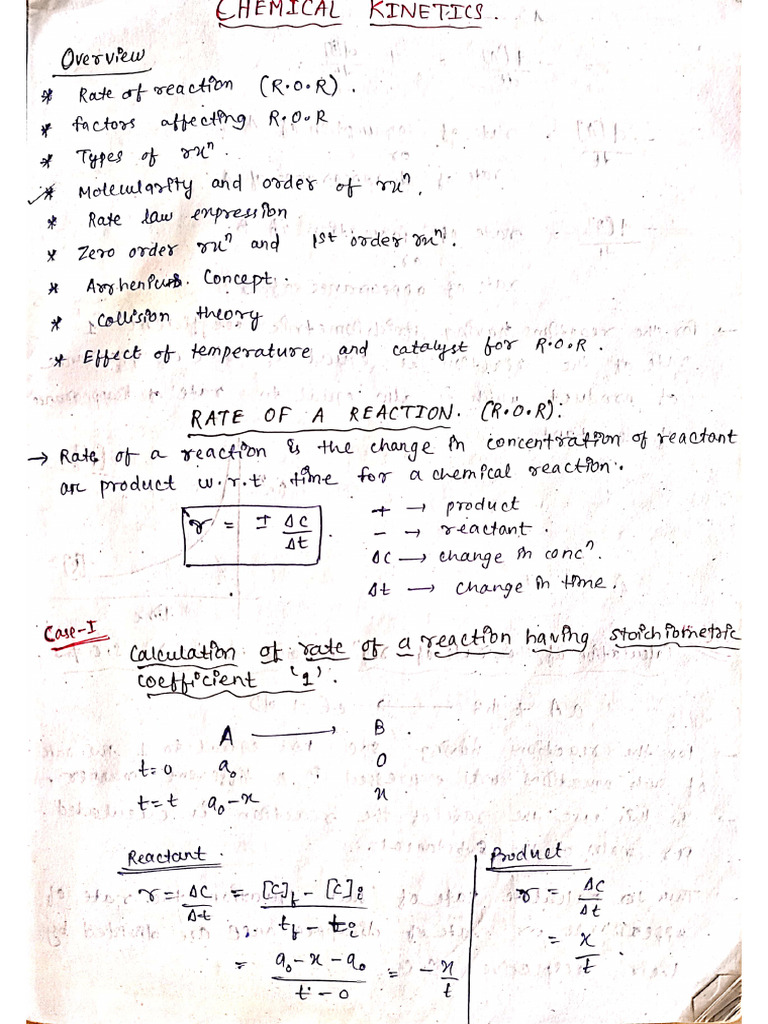 CHEMICAL KINETICS.
Overview
* Rate of reaction (R.O.R).
* factors affecting R.O.R
* Types of rxⁿ.
* Molecularity and order of rxⁿ.
* Rate law expression
* Zero order rxⁿ and 1st order rxⁿ.
* Arrhenius. Concept.
* Collision theory
* Effect of temperature and catalyst for R.O.R.
RATE OF A REACTION. (R.O.R):
→ Rate of a reaction is the change in concentration of reactant
or product w.r.t time for a chemical reaction.
r = ± Δc/Δt
+ → product
- → reactant.
Δc → change in concⁿ.
Δt → change in time.
Case-I
Calculation of rate of a reaction having stoichiometric
coefficient '1'.
A → B.
t=0 a₀ 0
t=t a₀-x x
Reactant.
r = Δc/Δt = [C]f - [C]i / tf - ti
= a₀-x-a₀ / t-0 = -x/t
Product
r = Δc/Δt
= x/t.